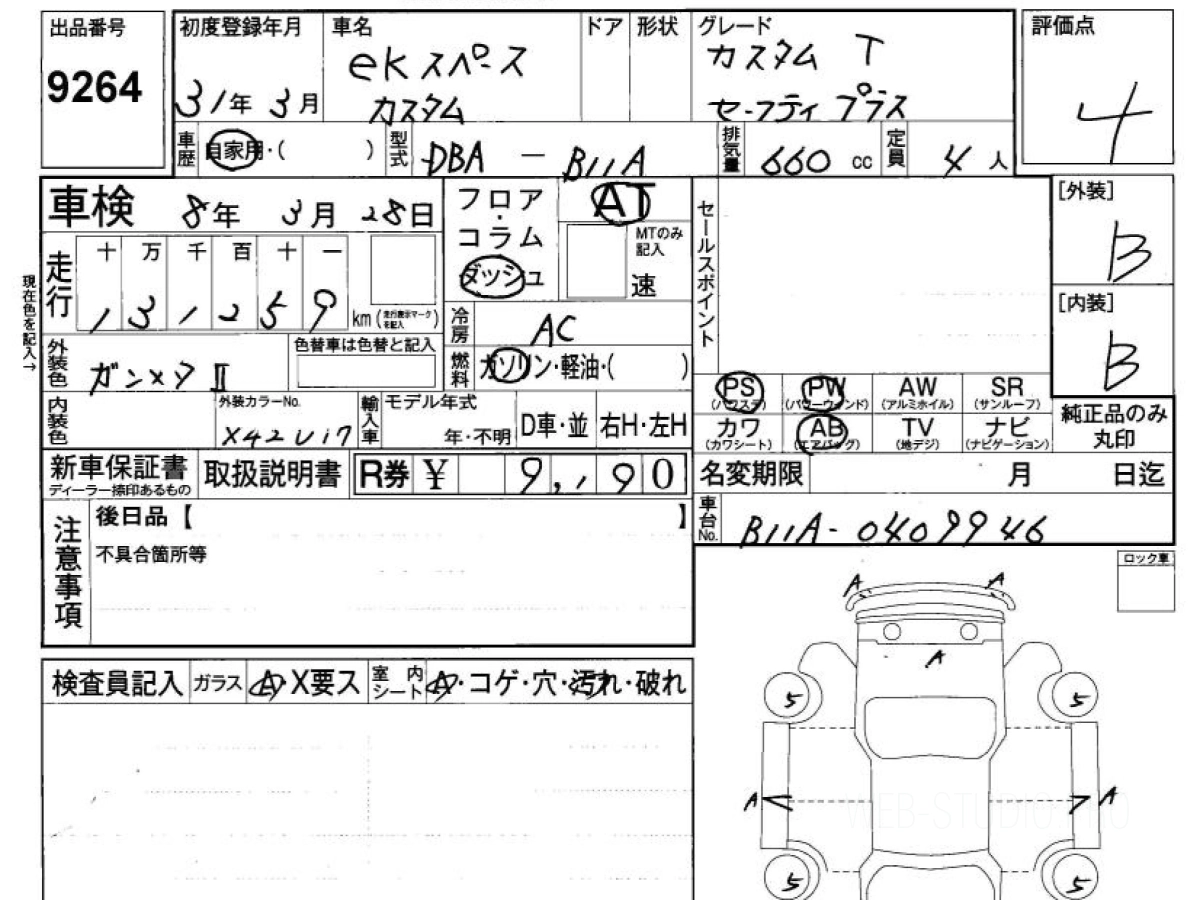 出品番号
9264
初度登録年月
31年 3月
車名
ekスペース
カスタム
ドア
形状
グレード
カスタム T
セーフティ プラス
評価点
4
車歴
自家用・( )
型式
DBA - B11A
排気量
660 cc
定員
4 人
車検 8年 3月 28日
フロア・コラム
ダッシュ
AT
MTのみ記入
速
セールスポイント
[外装]
B
[内装]
B
現在色を記入→
走行
十 万 千 百 十 一
1 3 1 2 5 9 km (走行表示マークを記入)
冷房
AC
外装色
ガンメタ II
色替車は色替と記入
燃料
ガソリン・軽油・( )
PS (パワステ)
PW (パワーウィンド)
AW (アルミホイル)
SR (サンルーフ)
カワ (カワシート)
AB (エアバッグ)
TV (地デジ)
ナビ (ナビゲーション)
純正品のみ丸印
内装色
外装カラーNo.
X42 Ui7
輸入車
モデル年式
年・不明
D車・並
右H・左H
新車保証書
ディーラー捺印あるもの
取扱説明書
R券 ¥ 9,190
名変期限 月 日迄
車台No.
B11A-0409946
注意事項
後日品【 】
不具合箇所等
ロック車
検査員記入
ガラス
A・X要ス
室内シート
A・コゲ・穴・汚れ・破れ
A
A
A
5
5
A
A
5
5
WEB-STUDIO.PRO